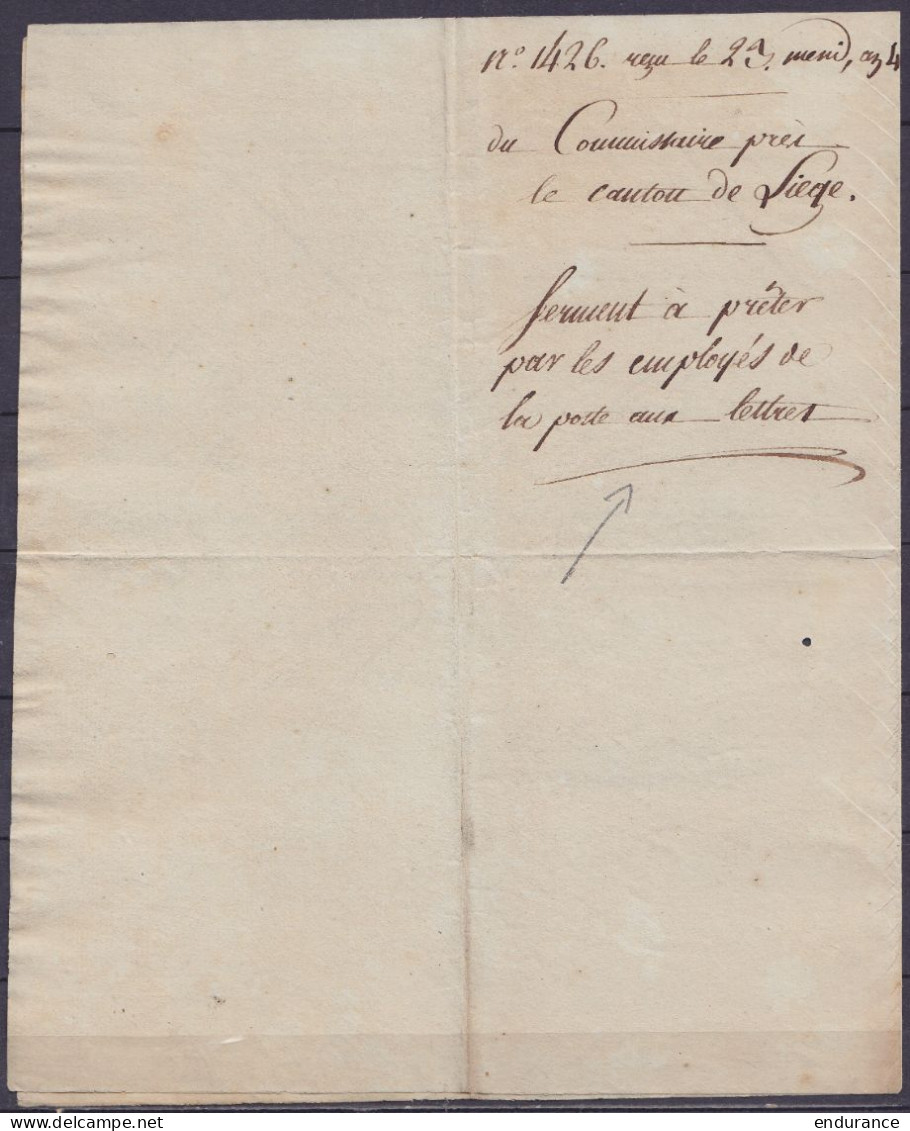 n.º 1426. reçu le 23. messid, an 4
du Commissaire près
le canton de Liege.
Serment à prêter
par les employés de
la poste aux lettres
delcampe.net
endurance